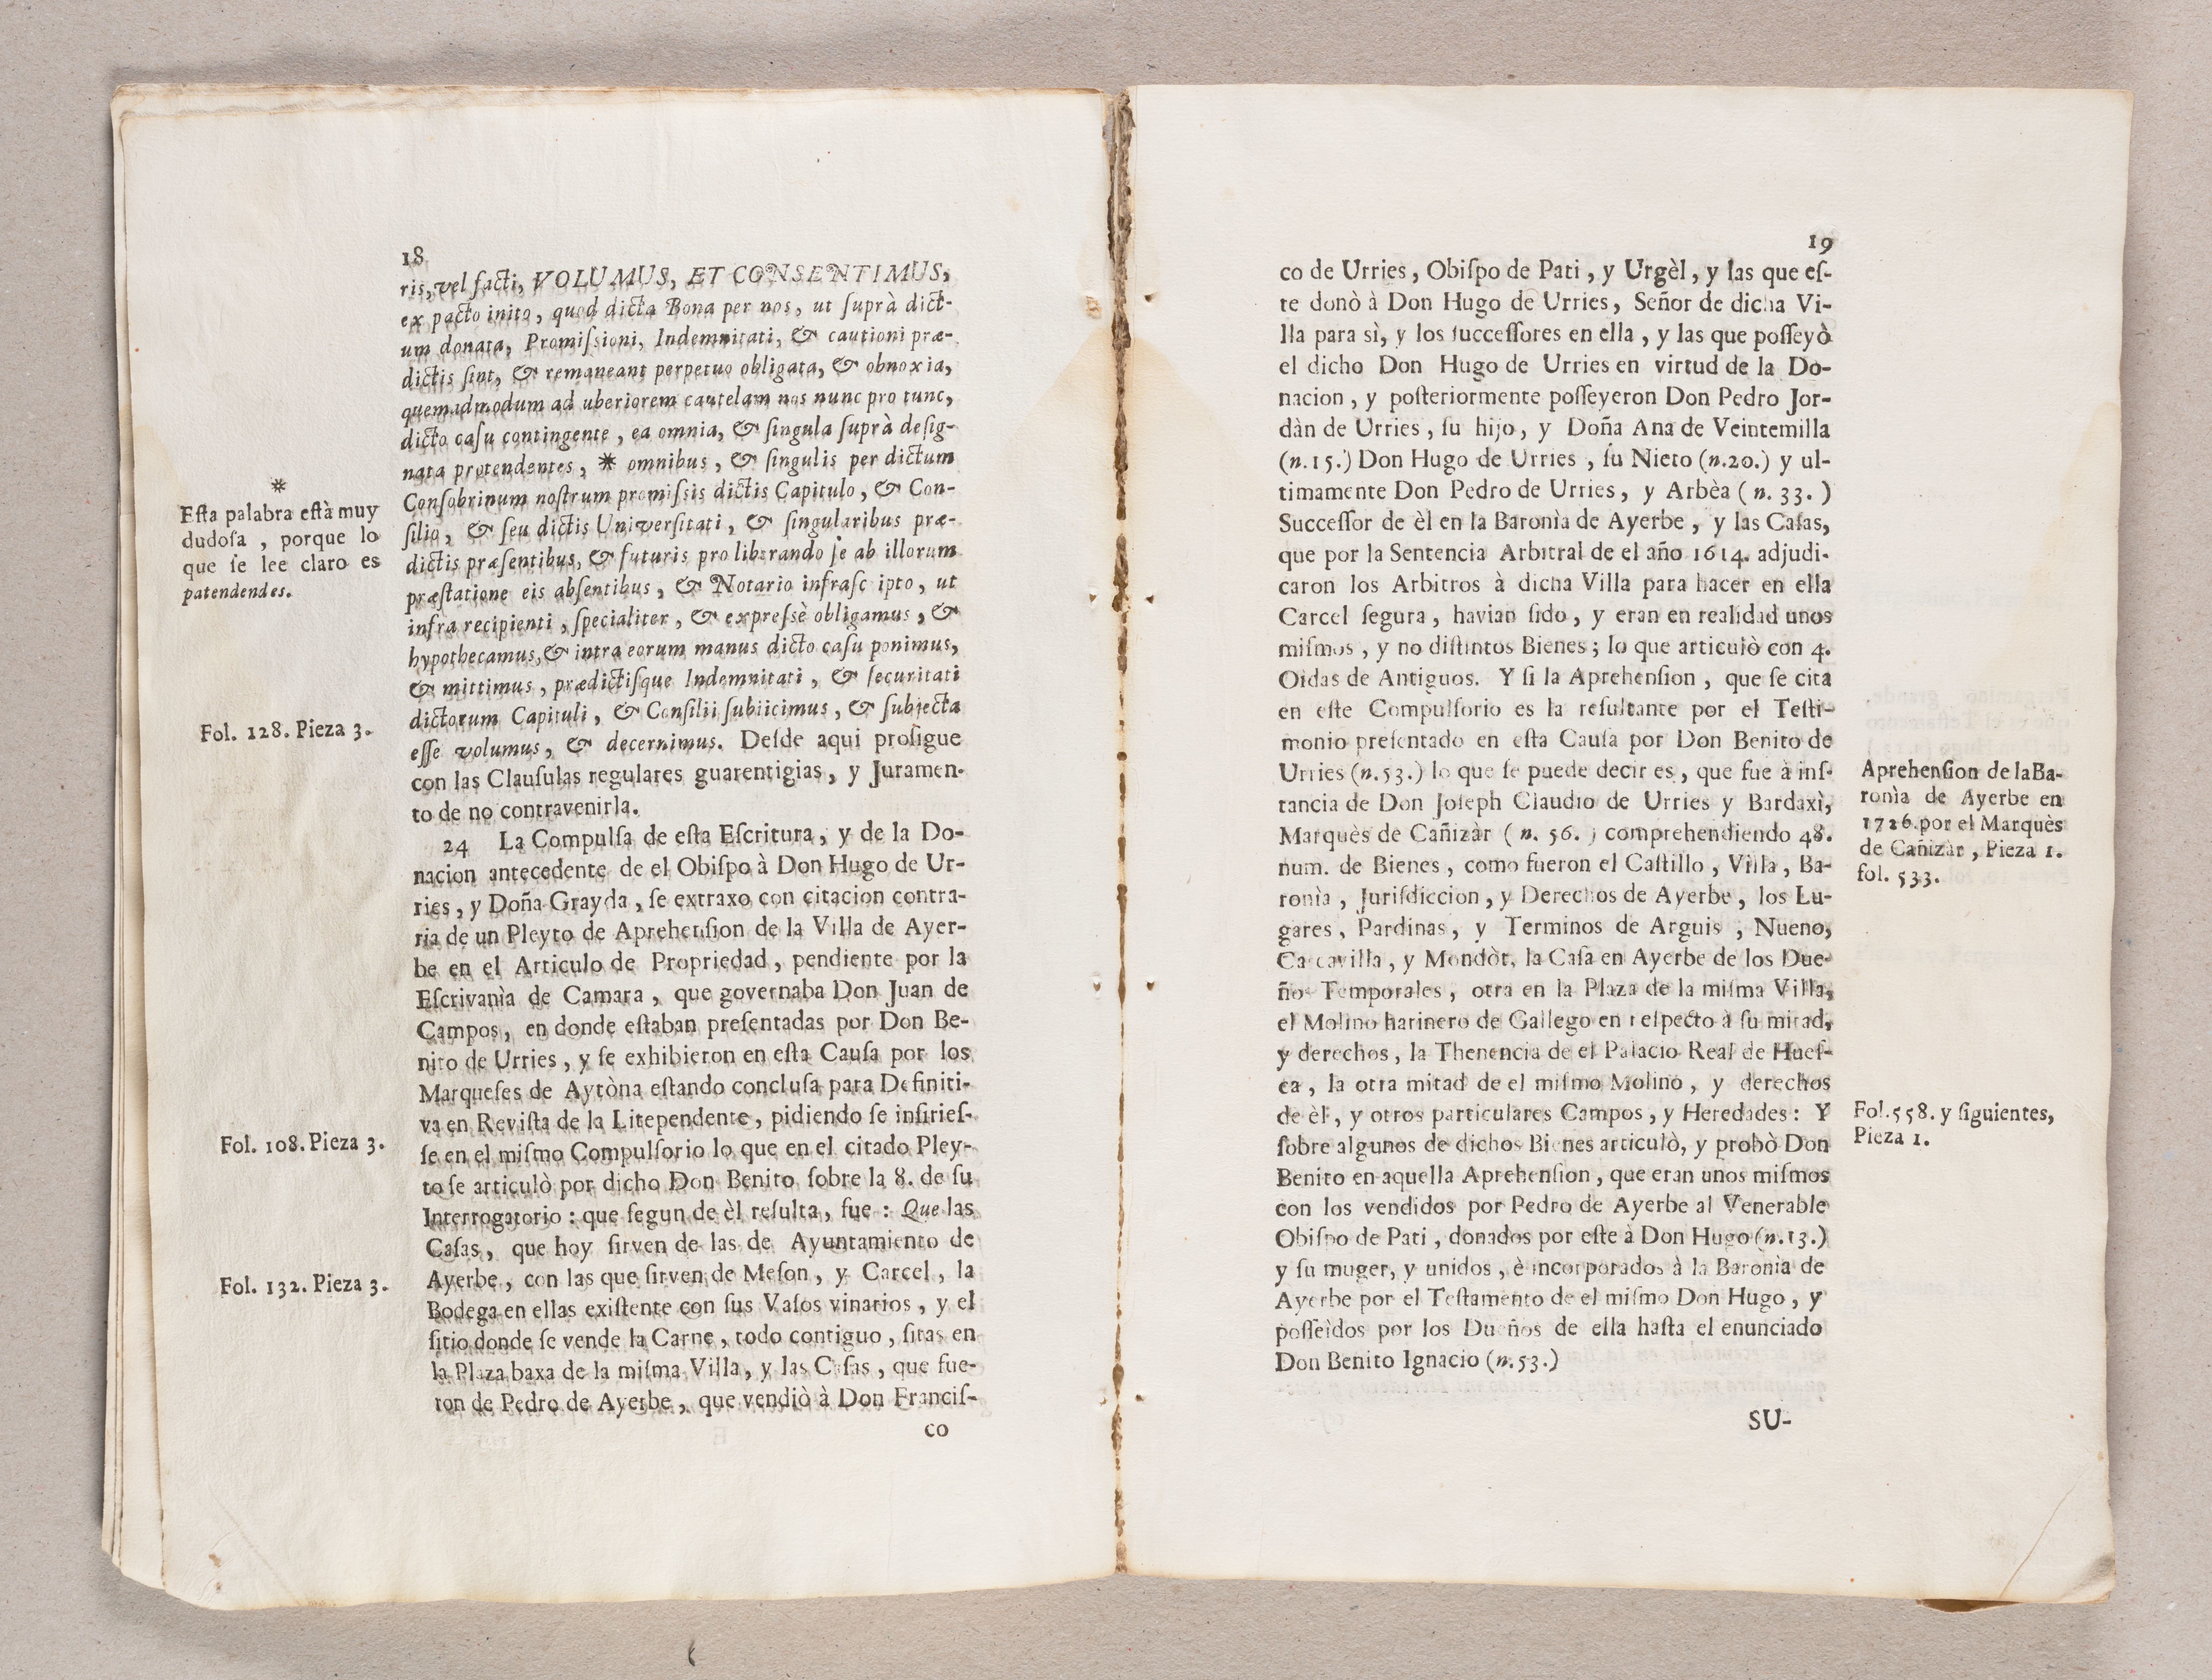 18
ris, vel facti, VOLUMUS, ET CONSENTIMUS,
ex pacto inito, quod dicta Bona per nos, ut ſuprà dict-
um donata, Promiſsioni, Indemnitati, & cautioni præ-
dictis ſint, & remaneant perpetuo obligata, & obnoxia,
quemadmodum ad uberiorem cautelam nos nunc pro tunc,
dicto caſu contingente, ea omnia, & ſingula ſuprà deſig-
nata protendentes, * omnibus, & ſingulis per dictum
Conſobrinum noſtrum promiſsis dictis Capitulo, & Con-
ſilio, & ſeu dictis Univerſitati, & ſingularibus præ-
dictis præſentibus, & futuris pro liberando ſe ab illorum
præſtatione eis abſentibus, & Notario infraſc ipto, ut
infra recipienti, ſpecialiter, & expreſsè obligamus, &
hypothecamus, & intra eorum manus dicto caſu ponimus,
& mittimus, prædictiſque Indemnitati, & ſecuritati
dictorum Capituli, & Conſilii ſubiicimus, & ſubjecta
eſſe volumus, & decernimus. Deſde aqui proſigue
con las Clauſulas regulares guarentigias, y Juramen-
to de no contravenirla.
24 La Compulſa de eſta Eſcritura, y de la Do-
nacion antecedente de el Obiſpo à Don Hugo de Ur-
ries, y Doña Grayda, ſe extraxo con citacion contra-
ria de un Pleyto de Aprehenſion de la Villa de Ayer-
be en el Articulo de Propriedad, pendiente por la
Eſcrivanìa de Camara, que governaba Don Juan de
Campos, en donde eſtaban preſentadas por Don Be-
nito de Urries, y ſe exhibieron en eſta Cauſa por los
Marqueſes de Aytòna eſtando concluſa para Definiti-
va en Reviſta de la Litependente, pidiendo ſe inſirieſ-
ſe en el miſmo Compulſorio lo que en el citado Pley-
to ſe articulò por dicho Don Benito ſobre la 8. de ſu
Interrogatorio: que ſegun de èl reſulta, fue: Que las
Caſas, que hoy ſirven de las de Ayuntamiento de
Ayerbe, con las que ſirven de Meſon, y Carcel, la
Bodega en ellas exiſtente con ſus Vaſos vinarios, y el
ſitio donde ſe vende la Carne, todo contiguo, ſitas en
la Plaza baxa de la miſma Villa, y las Caſas, que fue-
ron de Pedro de Ayerbe, que vendiò à Don Franciſ-
co
*
Eſta palabra eſtà muy
dudoſa, porque lo
que ſe lee claro es
patendendes.
Fol. 128. Pieza 3.
Fol. 108. Pieza 3.
Fol. 132. Pieza 3.
19
co de Urries, Obiſpo de Pati, y Urgèl, y las que eſ-
te donò à Don Hugo de Urries, Señor de dicha Vi-
lla para sì, y los ſucceſſores en ella, y las que poſſeyò
el dicho Don Hugo de Urries en virtud de la Do-
nacion, y poſteriormente poſſeyeron Don Pedro Jor-
dàn de Urries, ſu hijo, y Doña Ana de Veintemilla
(n. 15.) Don Hugo de Urries, ſu Nieto (n. 20.) y ul-
timamente Don Pedro de Urries, y Arbèa (n. 33.)
Succeſſor de èl en la Baronìa de Ayerbe, y las Caſas,
que por la Sentencia Arbitral de el año 1614. adjudi-
caron los Arbitros à dicha Villa para hacer en ella
Carcel ſegura, havian ſido, y eran en realidad unos
miſmos, y no diſtintos Bienes; lo que articulò con 4.
Oidas de Antiguos. Y ſi la Aprehenſion, que ſe cita
en eſte Compulſorio es la reſultante por el Teſti-
monio preſentado en eſta Cauſa por Don Benito de
Urries (n. 53.) lo que ſe puede decir es, que fue à inſ-
tancia de Don Joſeph Claudio de Urries y Bardaxì,
Marquès de Cañizàr (n. 56.) comprehendiendo 48.
num. de Bienes, como fueron el Caſtillo, Villa, Ba-
ronìa, Juriſdiccion, y Derechos de Ayerbe, los Lu-
gares, Pardinas, y Terminos de Arguis, Nueno,
Ca cavilla, y Mondòt, la Caſa en Ayerbe de los Due-
ños Temporales, otra en la Plaza de la miſma Villa,
el Molino harinero de Gallego en reſpecto à ſu mitad,
y derechos, la Thenencia de el Palacio Real de Hueſ-
ca, la otra mitad de el miſmo Molino, y derechos
de èl, y otros particulares Campos, y Heredades: Y
ſobre algunos de dichos Bienes articulò, y probò Don
Benito en aquella Aprehenſion, que eran unos miſmos
con los vendidos por Pedro de Ayerbe al Venerable
Obiſpo de Pati, donados por eſte à Don Hugo (n. 13.)
y ſu muger, y unidos, è incorporados à la Baronìa de
Ayerbe por el Teſtamento de el miſmo Don Hugo, y
poſſeìdos por los Dueños de ella haſta el enunciado
Don Benito Ignacio (n. 53.)
SU-
Aprehenſion de la Ba-
ronìa de Ayerbe en
1726. por el Marquès
de Cañizàr, Pieza 1.
fol. 533.
Fol. 558. y ſiguientes,
Pieza 1.